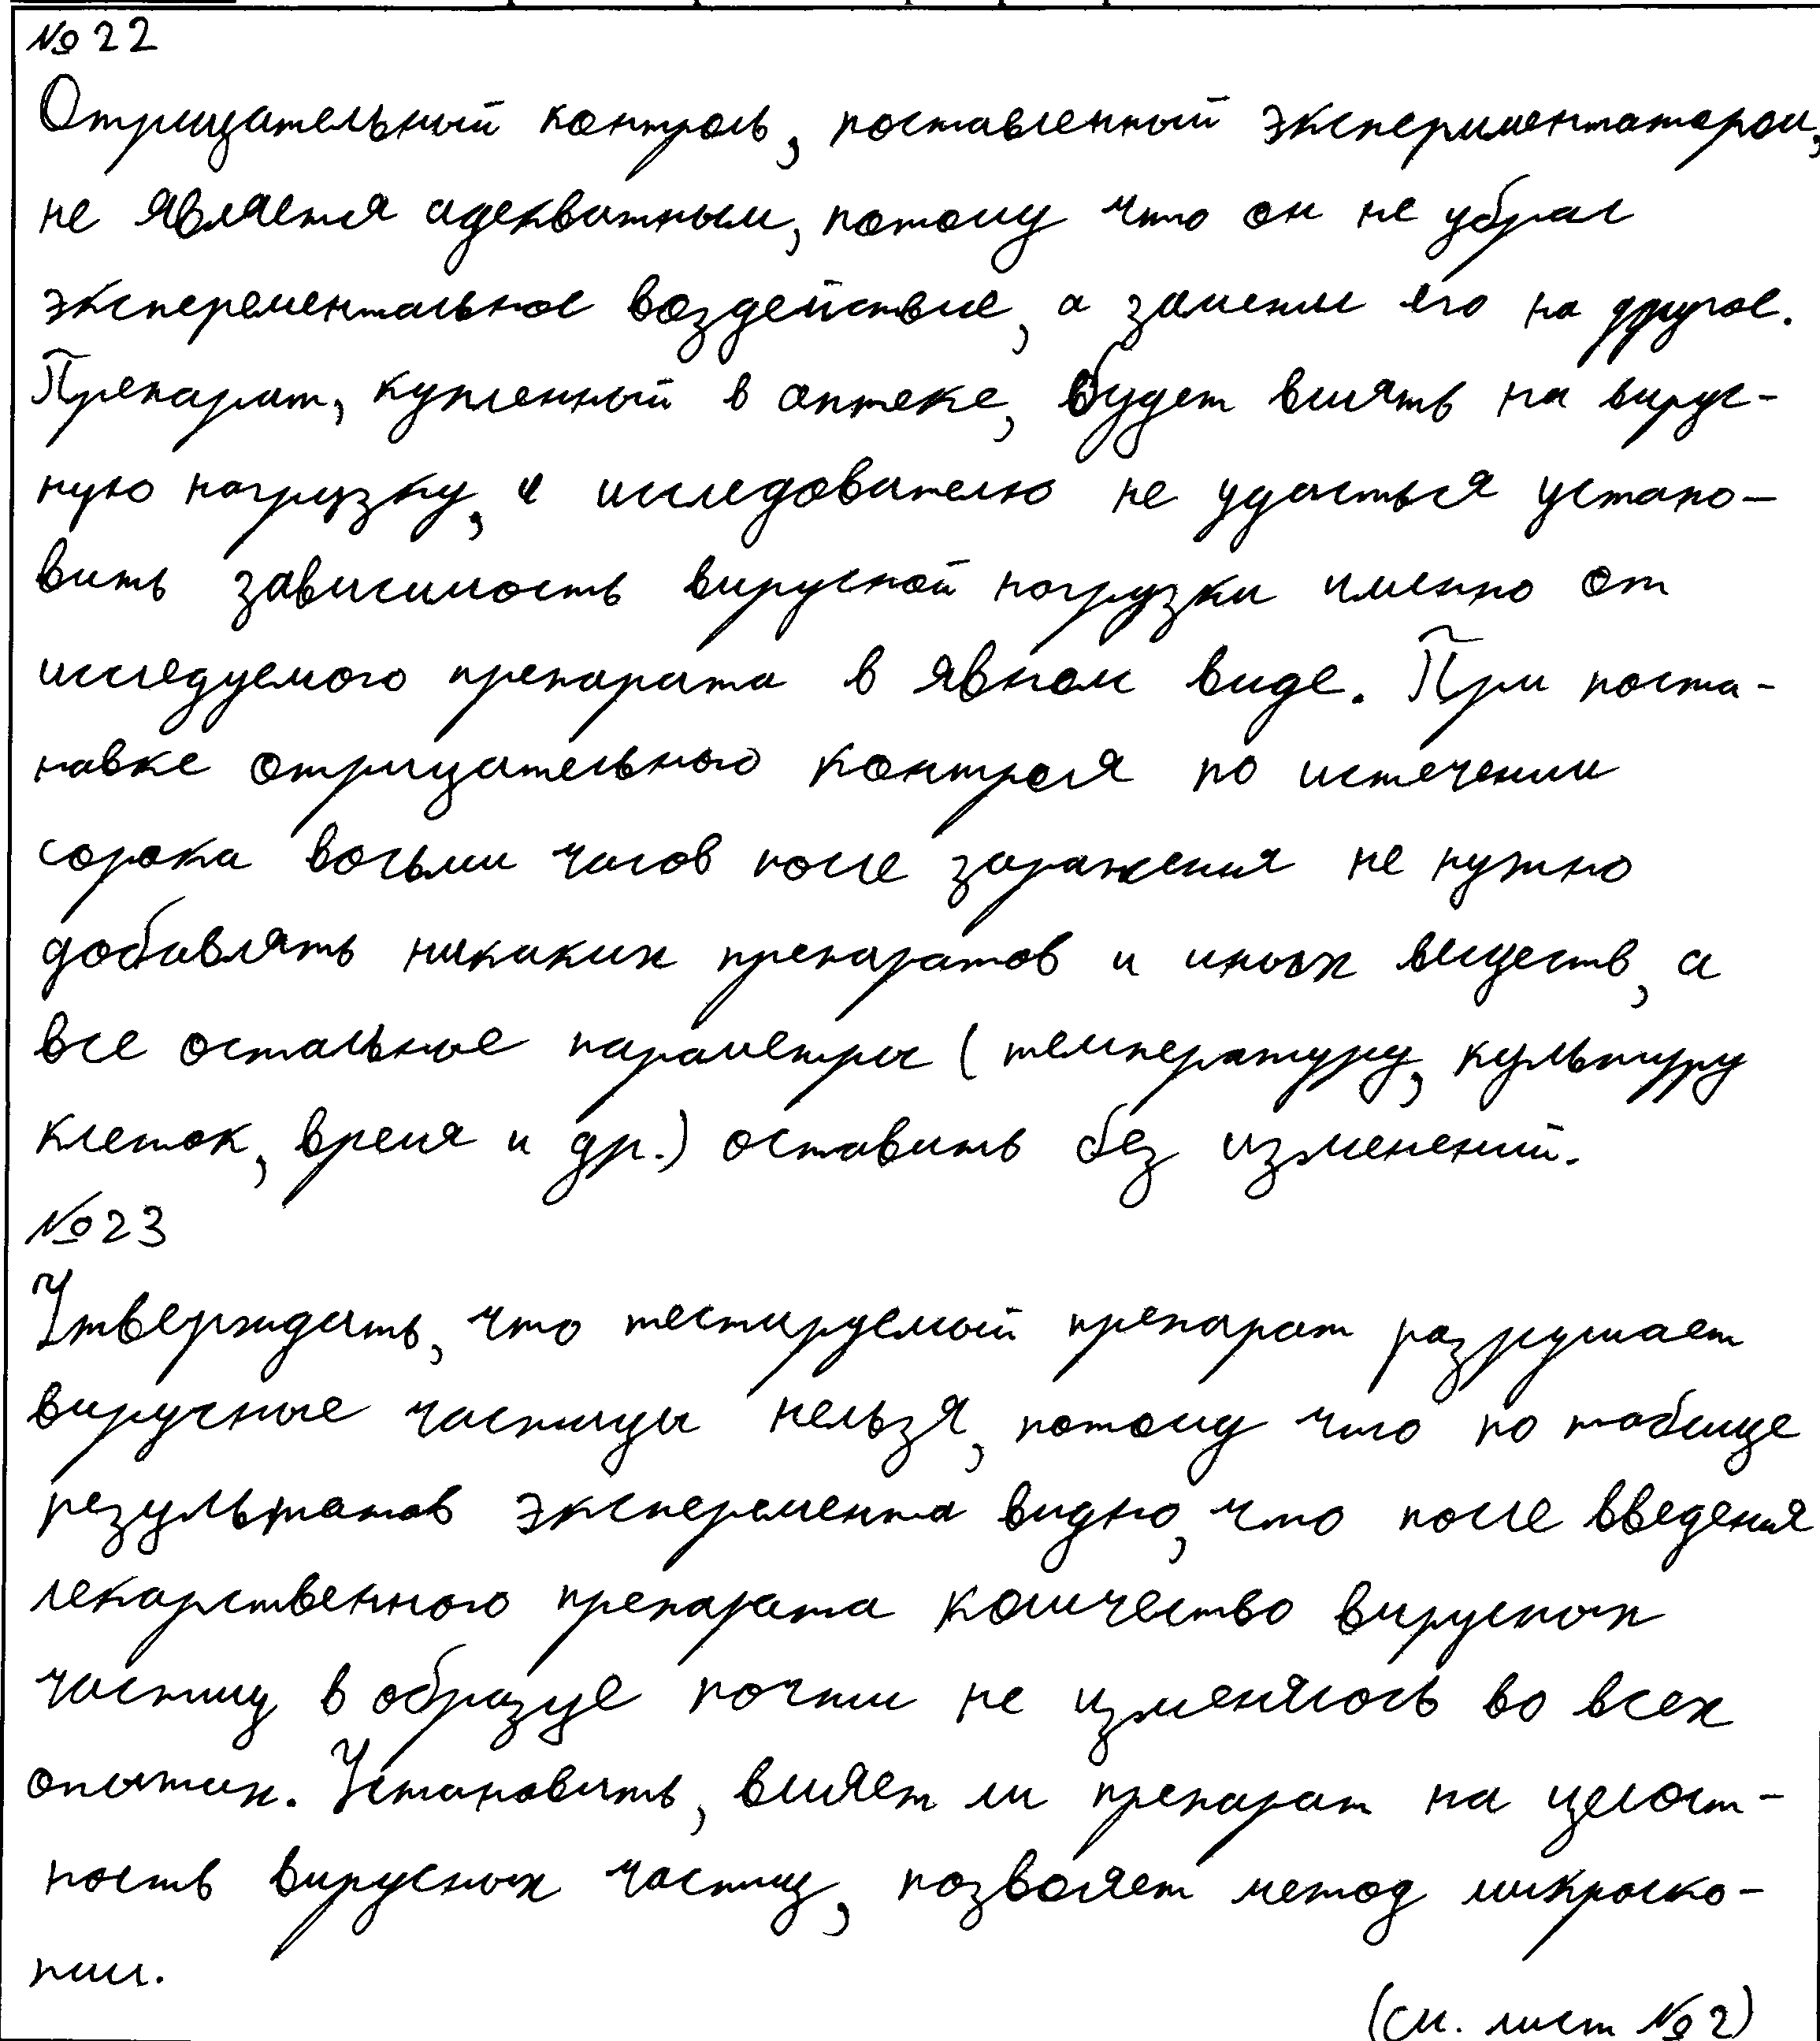 № 22
Отрицательный контроль, поставленный экспериментатором,
не является адекватным, потому что он не убрал
эксперементальное воздействие, а заменил его на другое.
Препарат, купленный в аптеке, будет влиять на вирус-
ную нагрузку, и исследователю не удасться устано-
вить зависимость вирусной нагрузки именно от
исследуемого препарата в явном виде. При поста-
новке отрицательного контроля по истечении
сорока восьми часов после заражения не нужно
добавлять никаких препаратов и иных веществ, а
все остальные параметры (температуру, культуру
клеток, время и др.) оставить без изменений.
№ 23
Утверждать, что тестируемый препарат разрушает
вирусные частицы нельзя, потому что по таблице
результатов эксперемента видно, что после введения
лекарственного препарата количество вирусных
частиц в образце почти не изменялось во всех
опытах. Установить, влияет ли препарат на целост-
ность вирусных частиц, позволяет метод микроско-
пии.
(см. лист № 2)